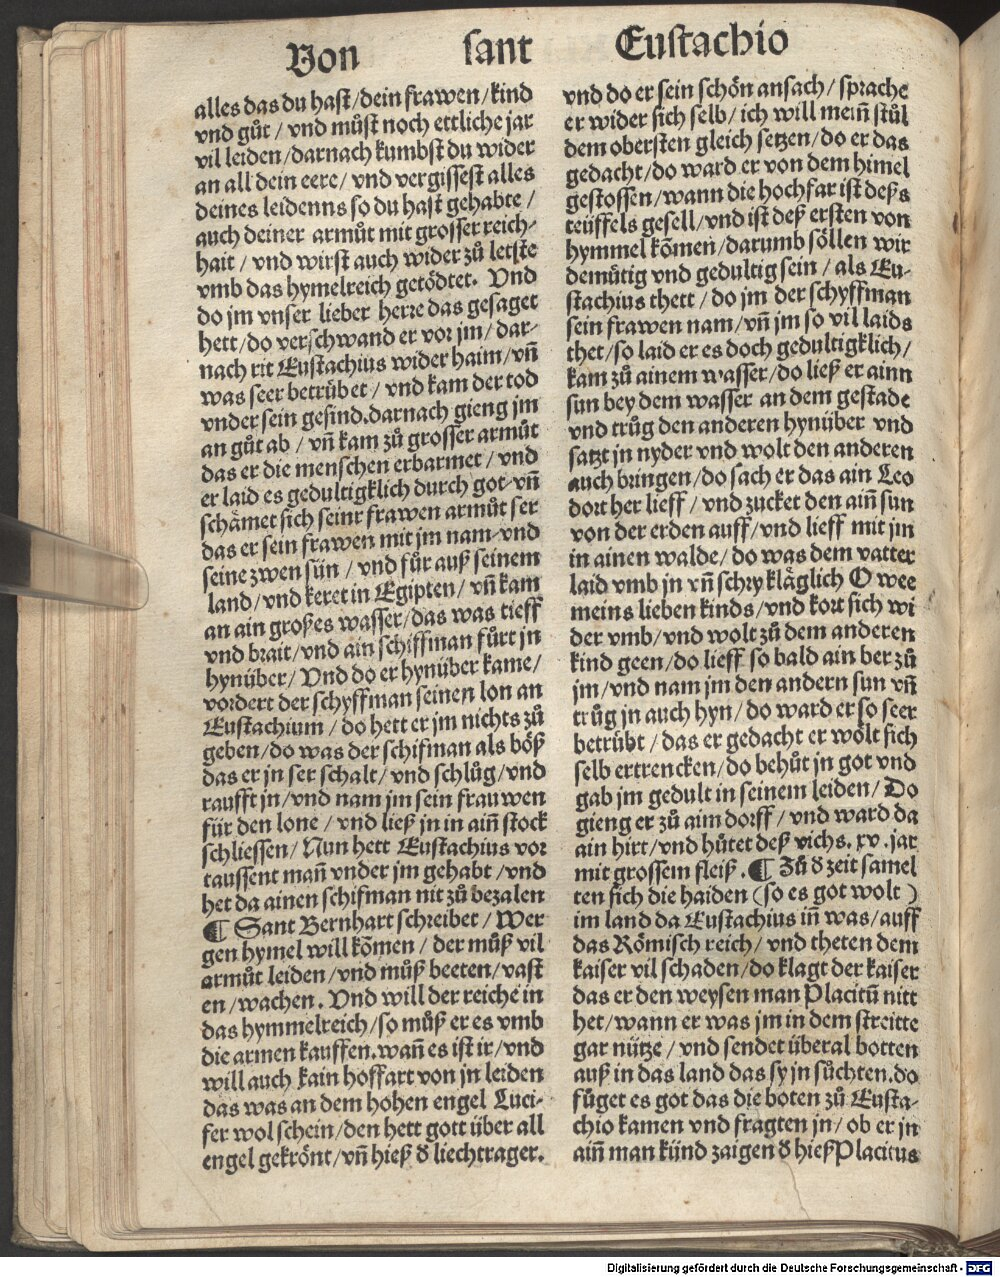 Von sant Eustachio
alles das du hast/dein frawen/kind
vnd gůt/vnd můst noch ettliche jar
vil leiden/darnach kumbst du wider
an all dein eere/vnd vergissest alles
deines leidenns so du hast gehabte/
auch deiner armůt mit grosser reich-
hait/vnd wirst auch wider zů letste
vmb das hymelreich getödtet. Vnd
do jm vnser lieber herre das gesaget
hett/do verschwand er vor jm/dar-
nach rit Eustachius wider haim/vñ
was seer betrübet/vnd kam der tod
vnder sein gesind.darnach gieng jm
an gůt ab/vñ kam zů grosser armůt
das er die menschen erbarmet/vnd
er laid es gedultigklich durch got-vñ
schämet sich seinr frawen armůt ser
das er sein frawen mit jm nam-vnd
seine zwen sün/vnd für auß seinem
land/vnd keret in Egipten/vñ kam
an ain großes wasser/das was tieff
vnd brait/vnd ain schiffman fůrt jn
hynüber/Vnd do er hynüber kame/
vordert der schyffman seinen lon an
Eustachium/do hett er jm nichts zů
geben/do was der schifman als böß
das er jn ser schalt/vnd schlůg/vnd
raufft jn/vnd nam jm sein frauwen
für den lone/vnd ließ jn in aiñ stock
schliessen/Nun hett Eustachius vor
taussent mañ vnder jm gehabt/vnd
het da ainen schifman nit zů bezalen
¶ Sant Bernhart schreibet/Wer
gen hymel will kõmen/der můß vil
armůt leiden/vnd můß beeten/vast
en/wachen. Vnd will der reiche in
das hymmelreich/so můß er es vmb
die armen kauffen.wañ es ist ir/vnd
will auch kain hoffart von jn leiden
das was an dem hohen engel Luci-
fer wol schein/den hett gott über all
engel gekrönt/vñ hieß d liechtrager.
vnd do er sein schön ansach/sprache
er wider sich selb/ich will meiñ stůl
dem obersten gleich setzen/do er das
gedacht/do ward er von dem himel
gestossen/wann die hochfar ist deßs
teüffels gesell/vnd ist deß ersten von
hymmel kõmen/darumb söllen wir
demůtig vnd gedultig sein/als Eu-
stachius thett/do jm der schyffman
sein frawen nam/vñ jm so vil laids
thet/so laid er es doch gedultigklich/
kam zů ainem wasser/do ließ er ainn
sun bey dem wasser an dem gestade
vnd trůg den anderen hynüber vnd
satzt jn nyder vnd wolt den anderen
auch bringen/do sach er das ain Leo
dort her lieff/vnd zucket den aiñ sun
von der erden auff/vnd lieff mit jm
in ainen walde/do was dem vatter
laid vmb jn vñ schry kläglich O wee
meins lieben kinds/vnd kort sich wi
der vmb/vnd wolt zů dem anderen
kind geen/do lieff so bald ain ber zů
jm/vnd nam jm den andern sun vñ
trůg jn auch hyn/do ward er so seer
betrübt/das er gedacht er wölt sich
selb ertrencken/do behůt jn got vnd
gab jm gedult in seinem leiden/Do
gieng er zů aim dorff/vnd ward da
ain hirt/vnd hůtet deß vichs. xv. jar
mit grossem fleiß. ¶ Zů d zeit samel
ten sich die haiden (so es got wolt )
im land da Eustachius iñ was/auff
das Römisch reich/vnd theten dem
kaiser vil schaden/do klagt der kaiser
das er den weysen man Placitũ nitt
het/wann er was jm in dem streitte
gar nütze/vnd sendet überal botten
auß in das land das sy jn sůchten.do
fůget es got das die boten zů Eusta-
chio kamen vnd fragten jn/ob er jn
aiñ man künd zaigen d hieß Placitus
Digitalisierung gefördert durch die Deutsche Forschungsgemeinschaft - DFG